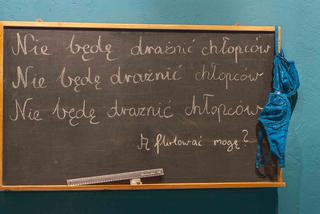 Nie będę drażnić chłopców
Nie będę drażnić chłopców
Nie będę drażnić chłopców
flirtować mogę?